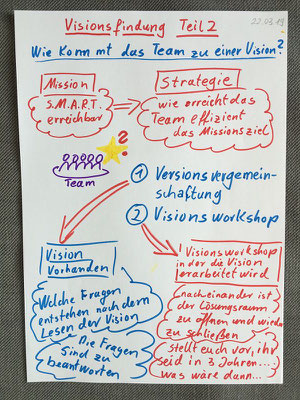 Visionsfindung Teil 2
22.03.19
Wie kommt das Team zu einer Vision?
Mission
S.M.A.R.T.
erreichbar
Strategie
wie erreicht das
Team effizient
das Missionsziel
Team
1 Versionsvergemein-
schaftung
2 Visionsworkshop
Vision
Vorhanden
Welche Fragen
entstehen nach dem
Lesen der Vision
Die Fragen
sind zu
beantworten
Visionsworkshop
in der die Vision
erarbeitet wird
nacheinander, ist
der Lösungsraum
zu öffnen und wieder
zu schließen
stellt euch vor, ihr
seid in 3 Jahren...
was wäre dann...